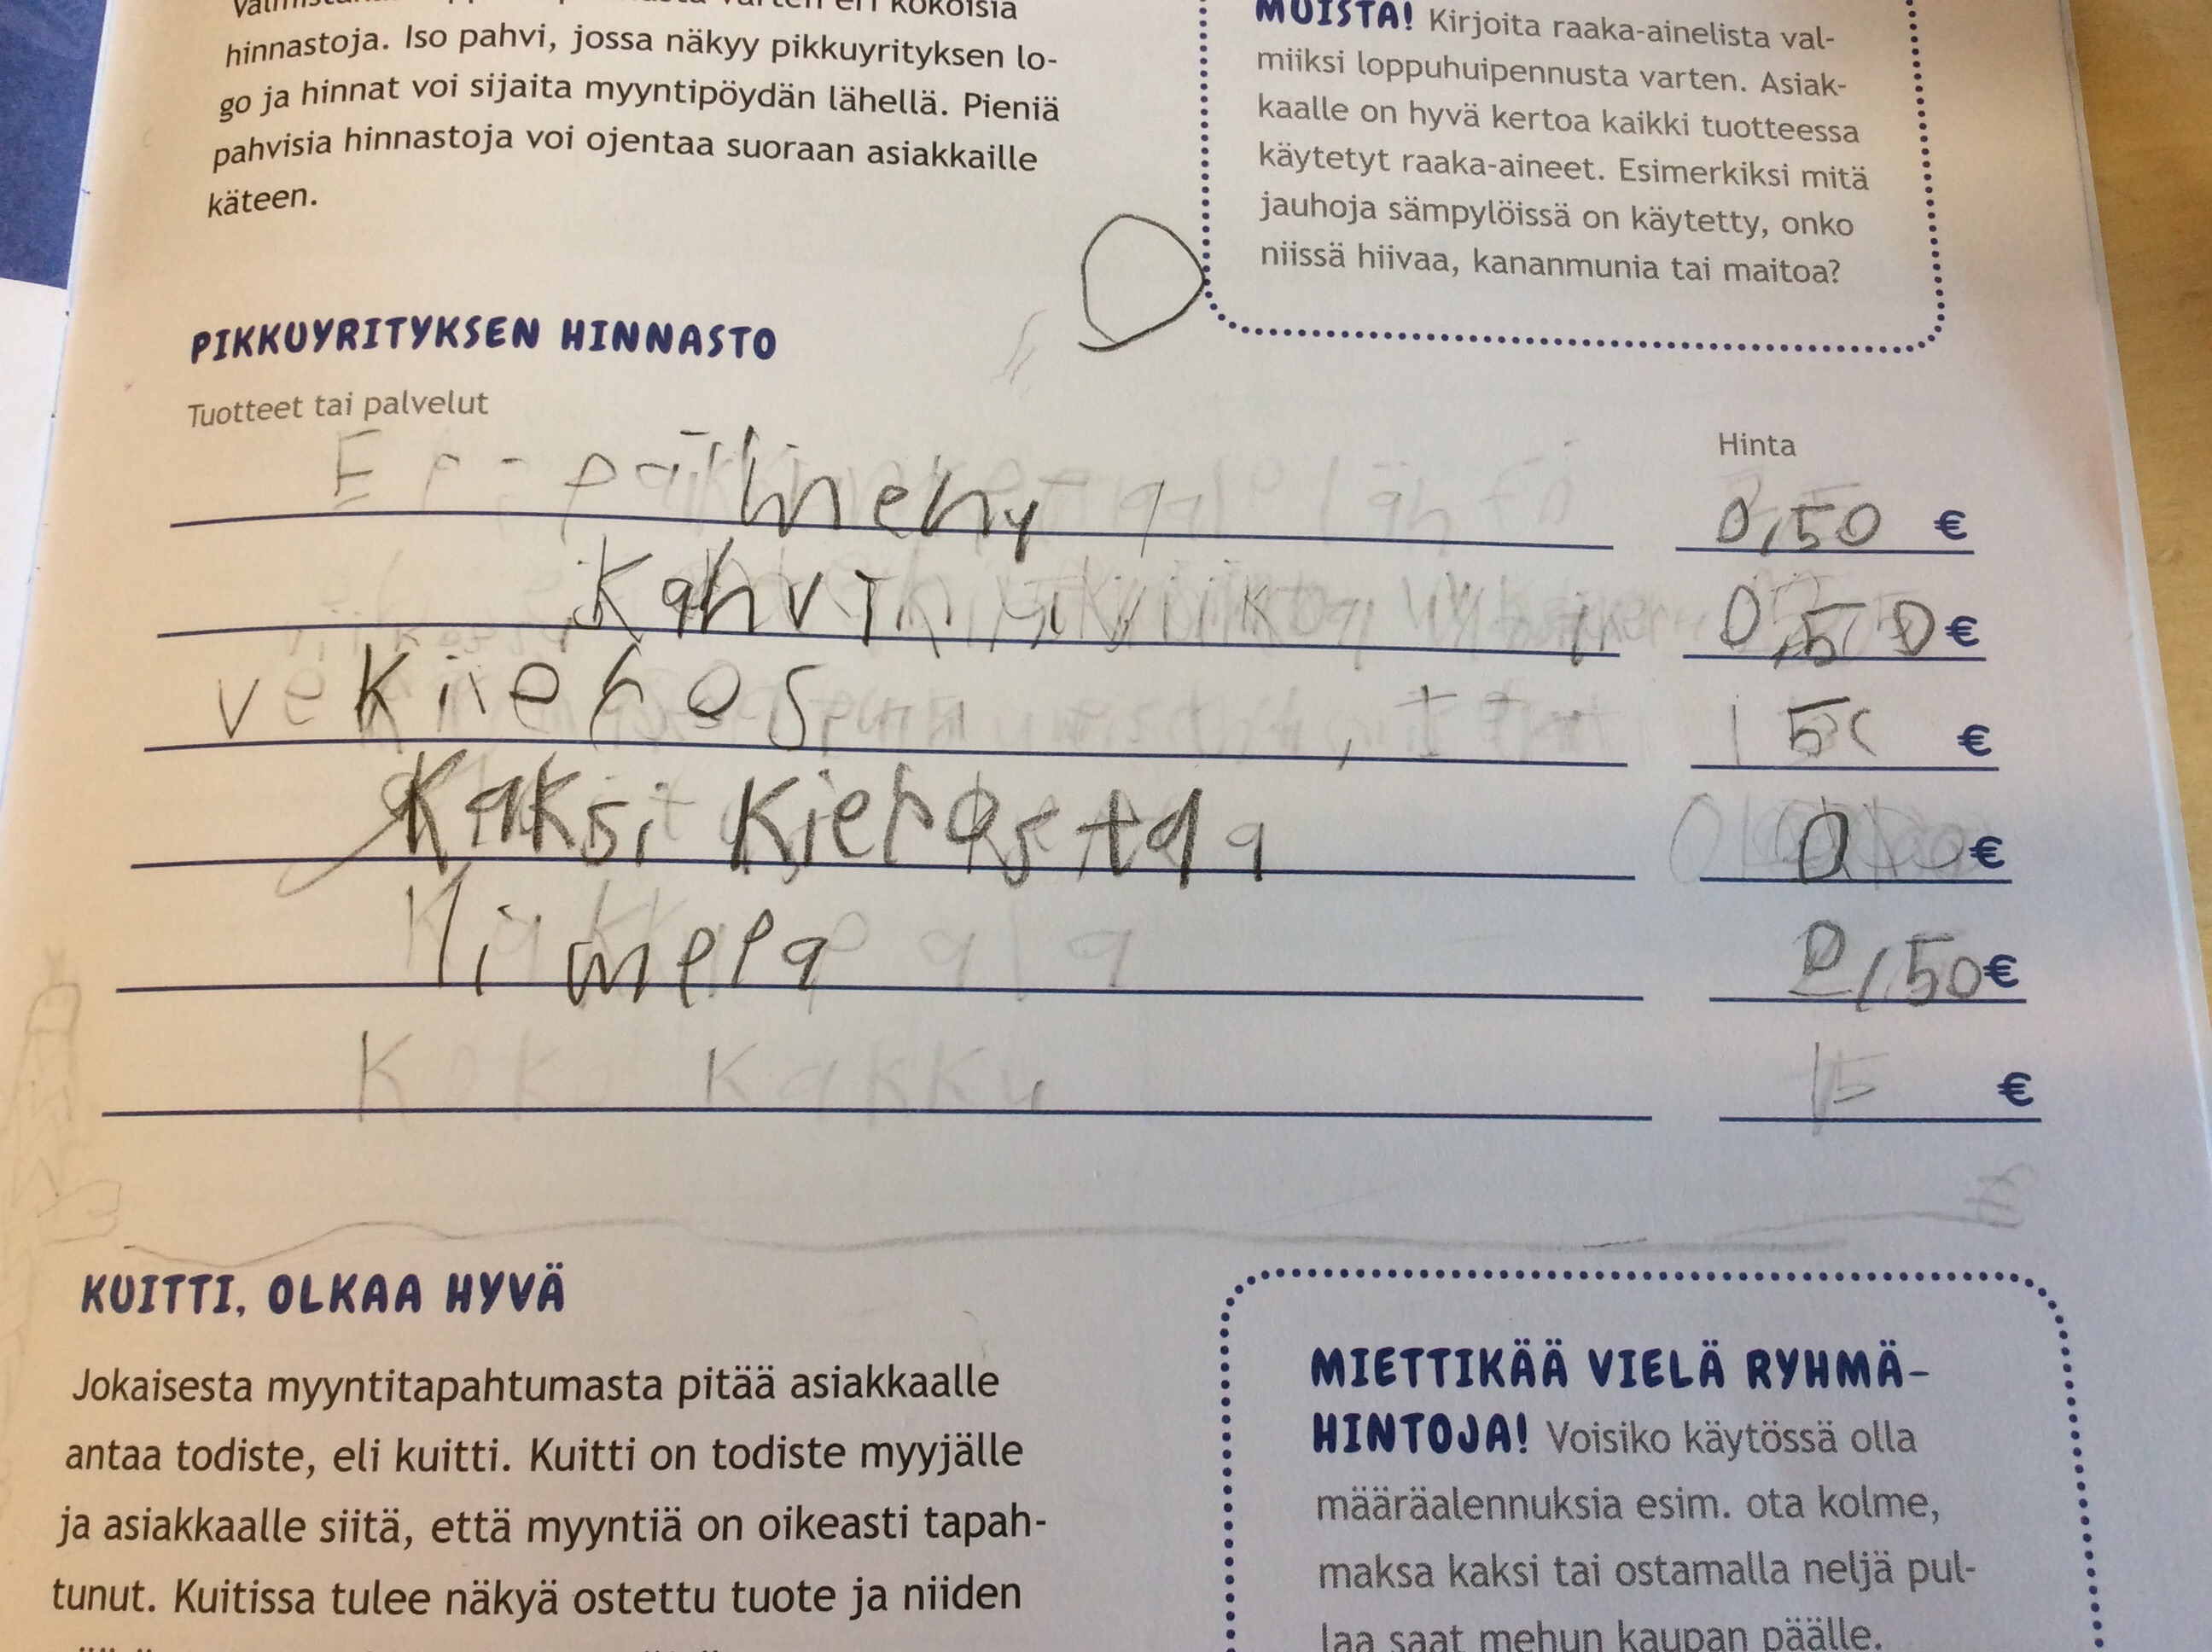 hinnastoja. Iso pahvi, jossa näkyy pikkuyrityksen lo-
go ja hinnat voi sijaita myyntipöydän lähellä. Pieniä
pahvisia hinnastoja voi ojentaa suoraan asiakkaille
käteen.
MUISTA! Kirjoita raaka-ainelista val-
miiksi loppuhuipennusta varten. Asiak-
kaalle on hyvä kertoa kaikki tuotteessa
käytetyt raaka-aineet. Esimerkiksi mitä
jauhoja sämpylöissä on käytetty, onko
niissä hiivaa, kananmunia tai maitoa?
PIKKUYRITYKSEN HINNASTO
Tuotteet tai palvelut
Hinta
0,50 €
Kahvi 0,50 €
€
Kaksi Kierostaa 0 €
2,50 €
Koko Kakku 15 €
KUITTI, OLKAA HYVÄ
Jokaisesta myyntitapahtumasta pitää asiakkaalle
antaa todiste, eli kuitti. Kuitti on todiste myyjälle
ja asiakkaalle siitä, että myyntiä on oikeasti tapah-
tunut. Kuitissa tulee näkyä ostettu tuote ja niiden
MIETTIKÄÄ VIELÄ RYHMÄ-
HINTOJA! Voisiko käytössä olla
määräalennuksia esim. ota kolme,
maksa kaksi tai ostamalla neljä pul-
laa saat mehun kaupan päälle.